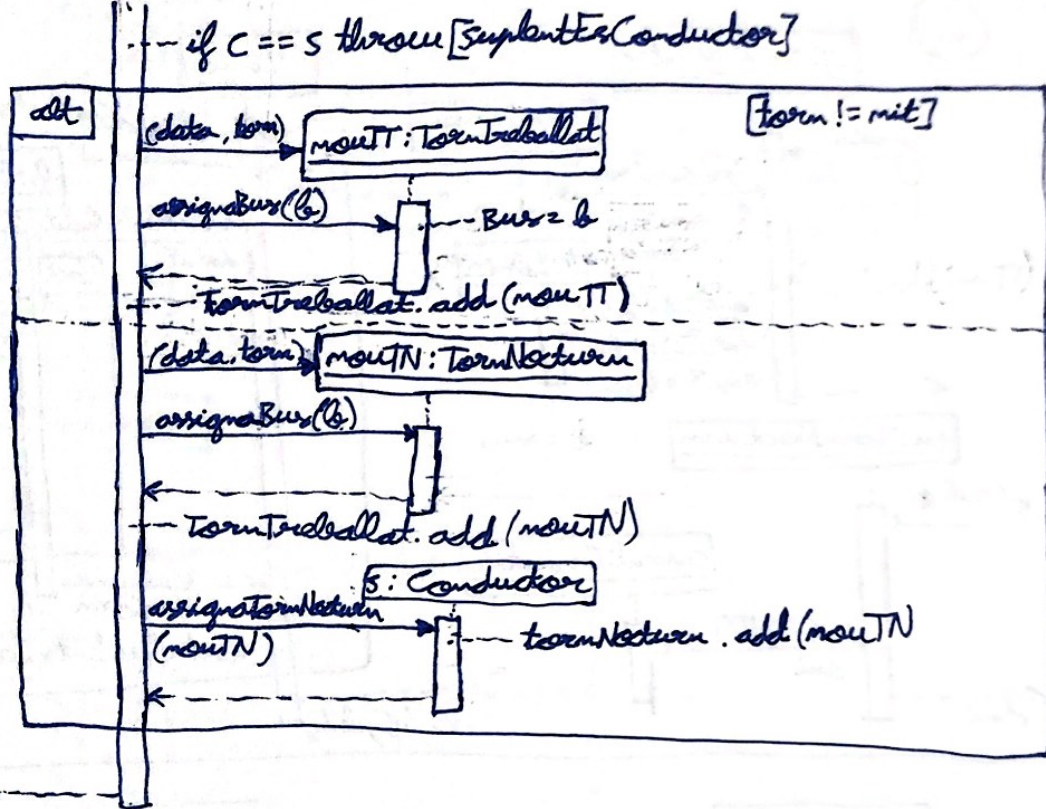 if c == s throw [suplentEsConductor]
alt
[torn != nit]
(data, torn)
nouTT : TornTreballat
assignaBus(b)
Bus = b
tornTreballat.add(nouTT)
(data, torn)
nouTN : TornNocturn
assignaBus(b)
TornTreballat.add(nouTN)
s : Conductor
assignaTornNocturn
(nouTN)
tornNocturn.add(nouTN